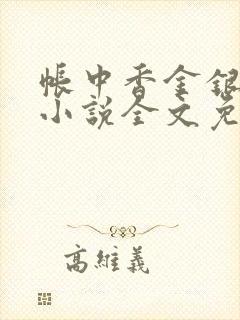 帳中香金銀
小說全文免
高維義